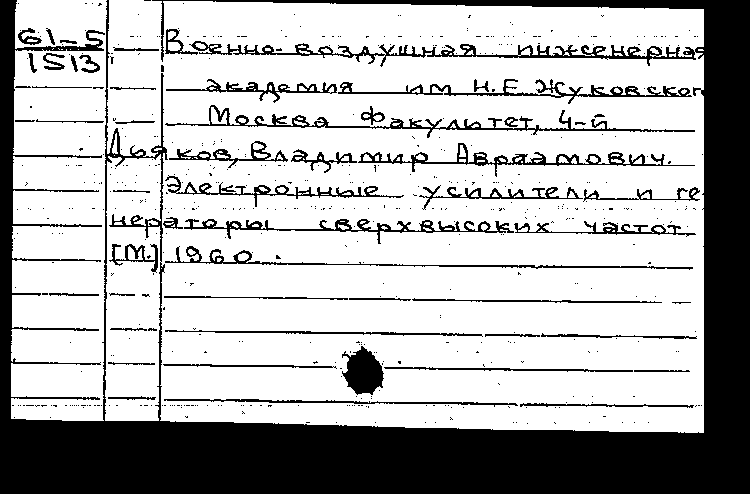 61-5
1513
Военно-воздушная инженерная
академия им Н.Е Жуковског
Москва Факультет, 4-й
Дьяков, Владимир Авраамович.
Электронные усилители и ге-
нераторы сверхвысоких частот
[М.], 1960.